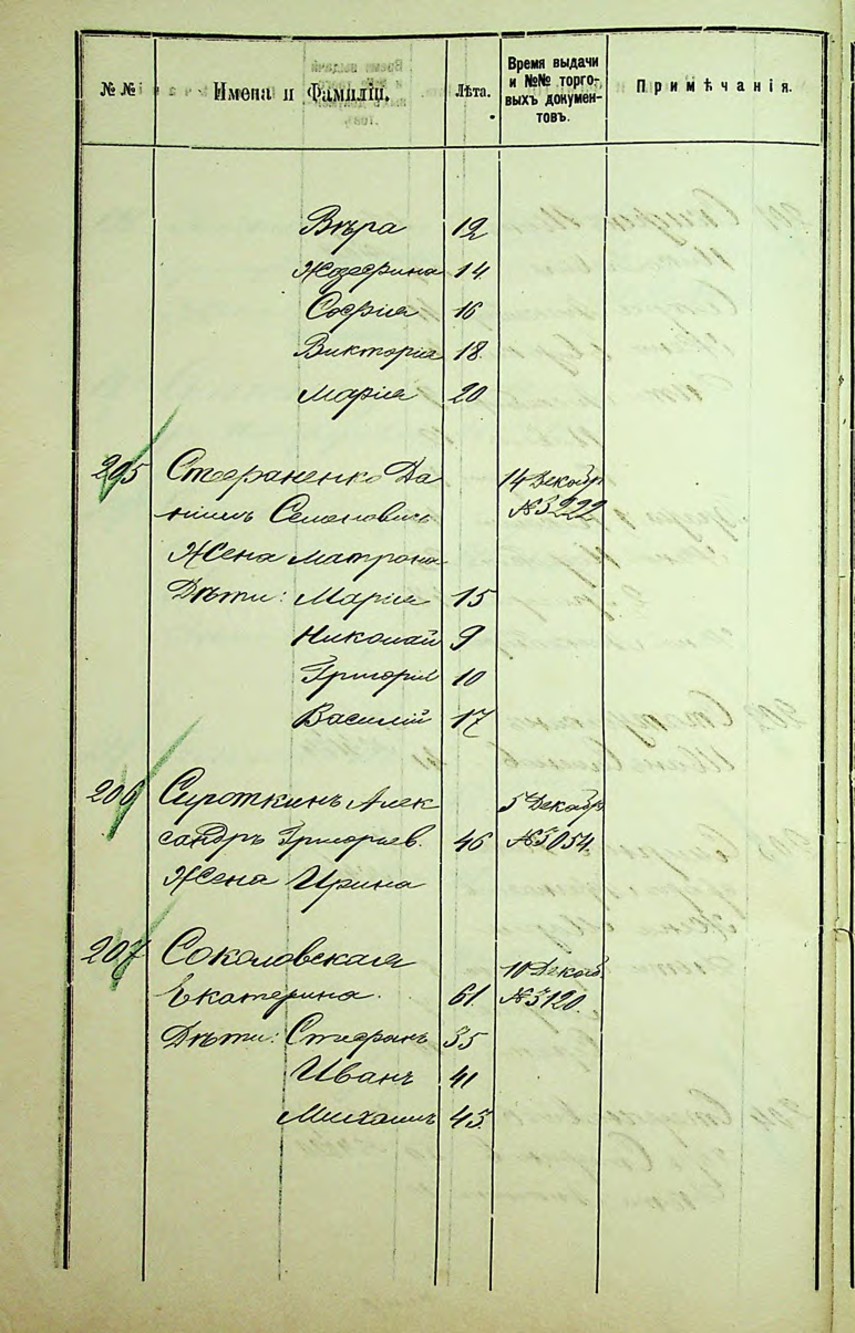 №№ Имена и Фамиліи. Лѣта. Время выдачи и №№ торго-выхъ докумен-товъ. Примѣчанія.
Вѣра 12
Жозефина 14
Софія 16
Викторія 18.
Марія 20
205 Стефаненко Да 14 Декабр
ніилъ Семеновичъ №3222
Жена Матрона
Дѣти: Марія 15
Николай 9
Григорій 10
Василій 17
206 Сироткинъ Алек 5 Декабр
сандръ Григорьев. 46 №3054.
Жена Ирина
207 Соколовская 10 Декаб
Екатерина. 61. №3120.
Дѣти: Стефанъ 35
Иванъ 41
Михаилъ 43.